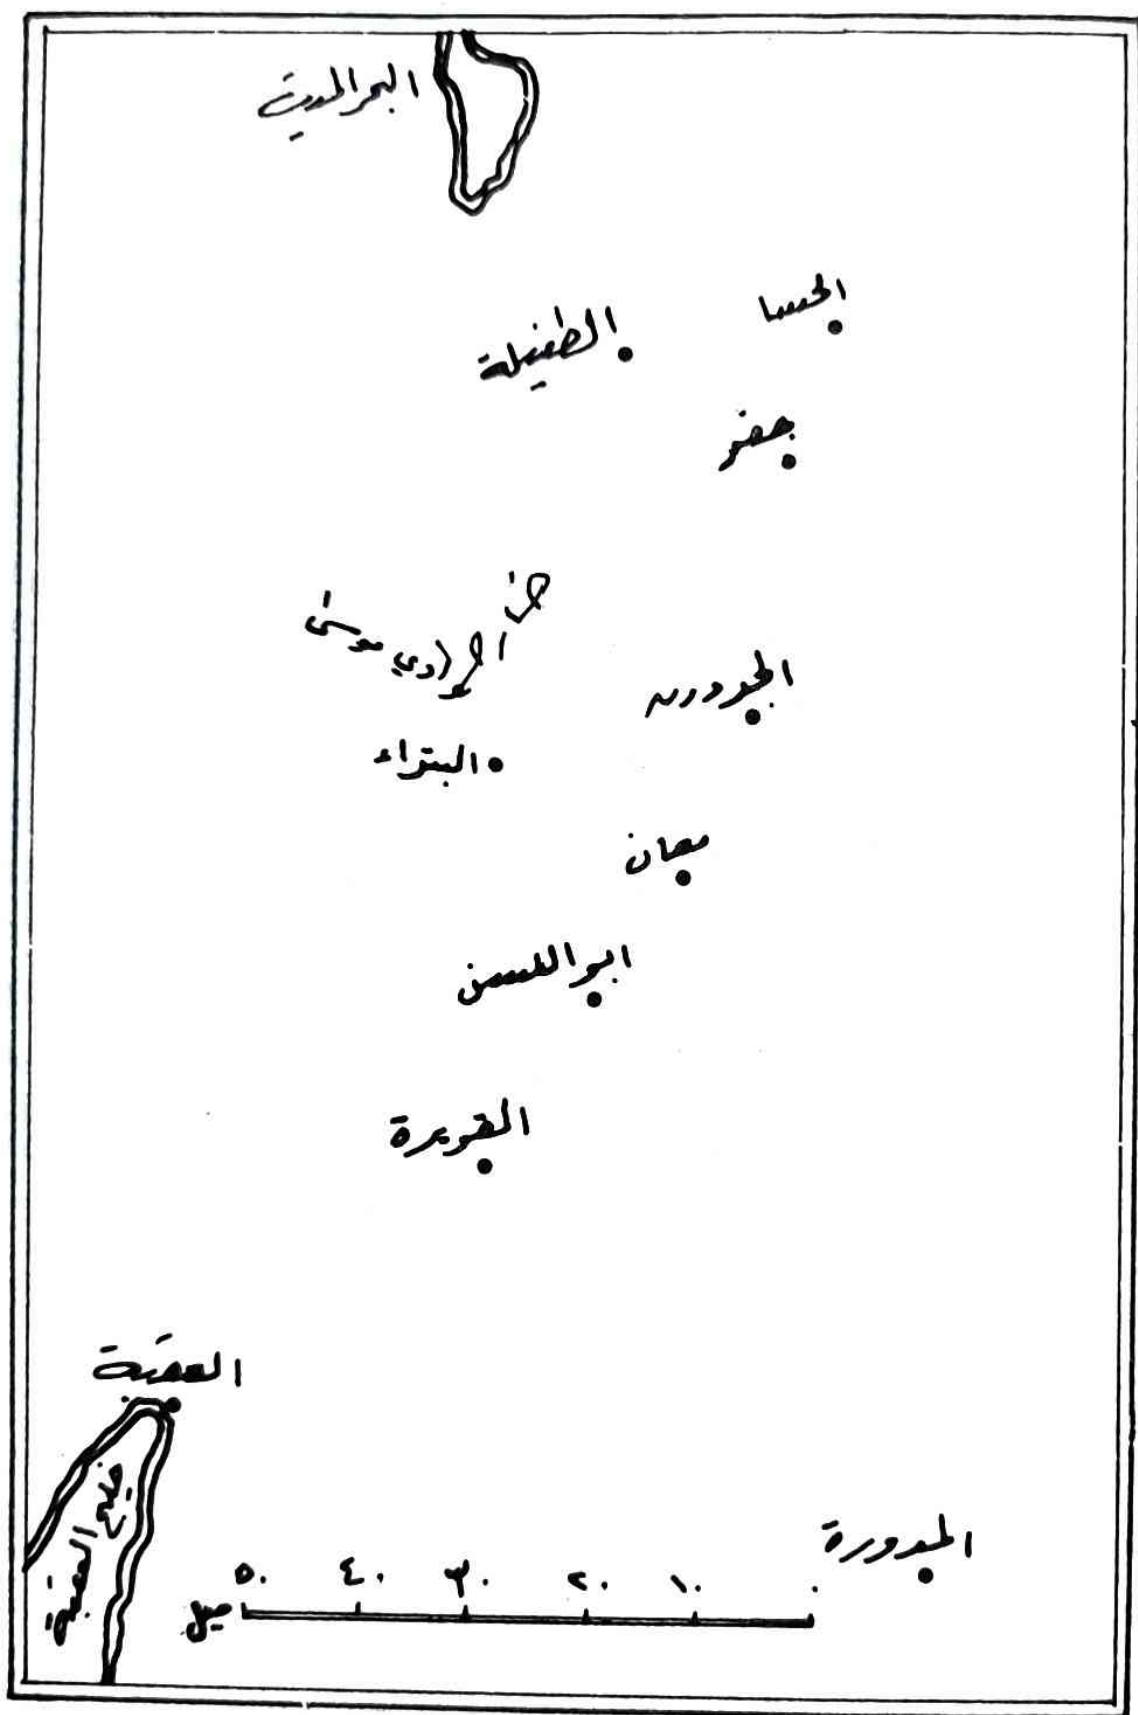 البحر الميت
الحسا
الطفيلة
جفر
وادي موسى
الجردونه
البتراء
معان
ابو اللسن
القويرة
العقبة
خليج العقبة
المدورة
٥٠ ٤٠ ٣٠ ٢٠ ١٠ ٠
ميل